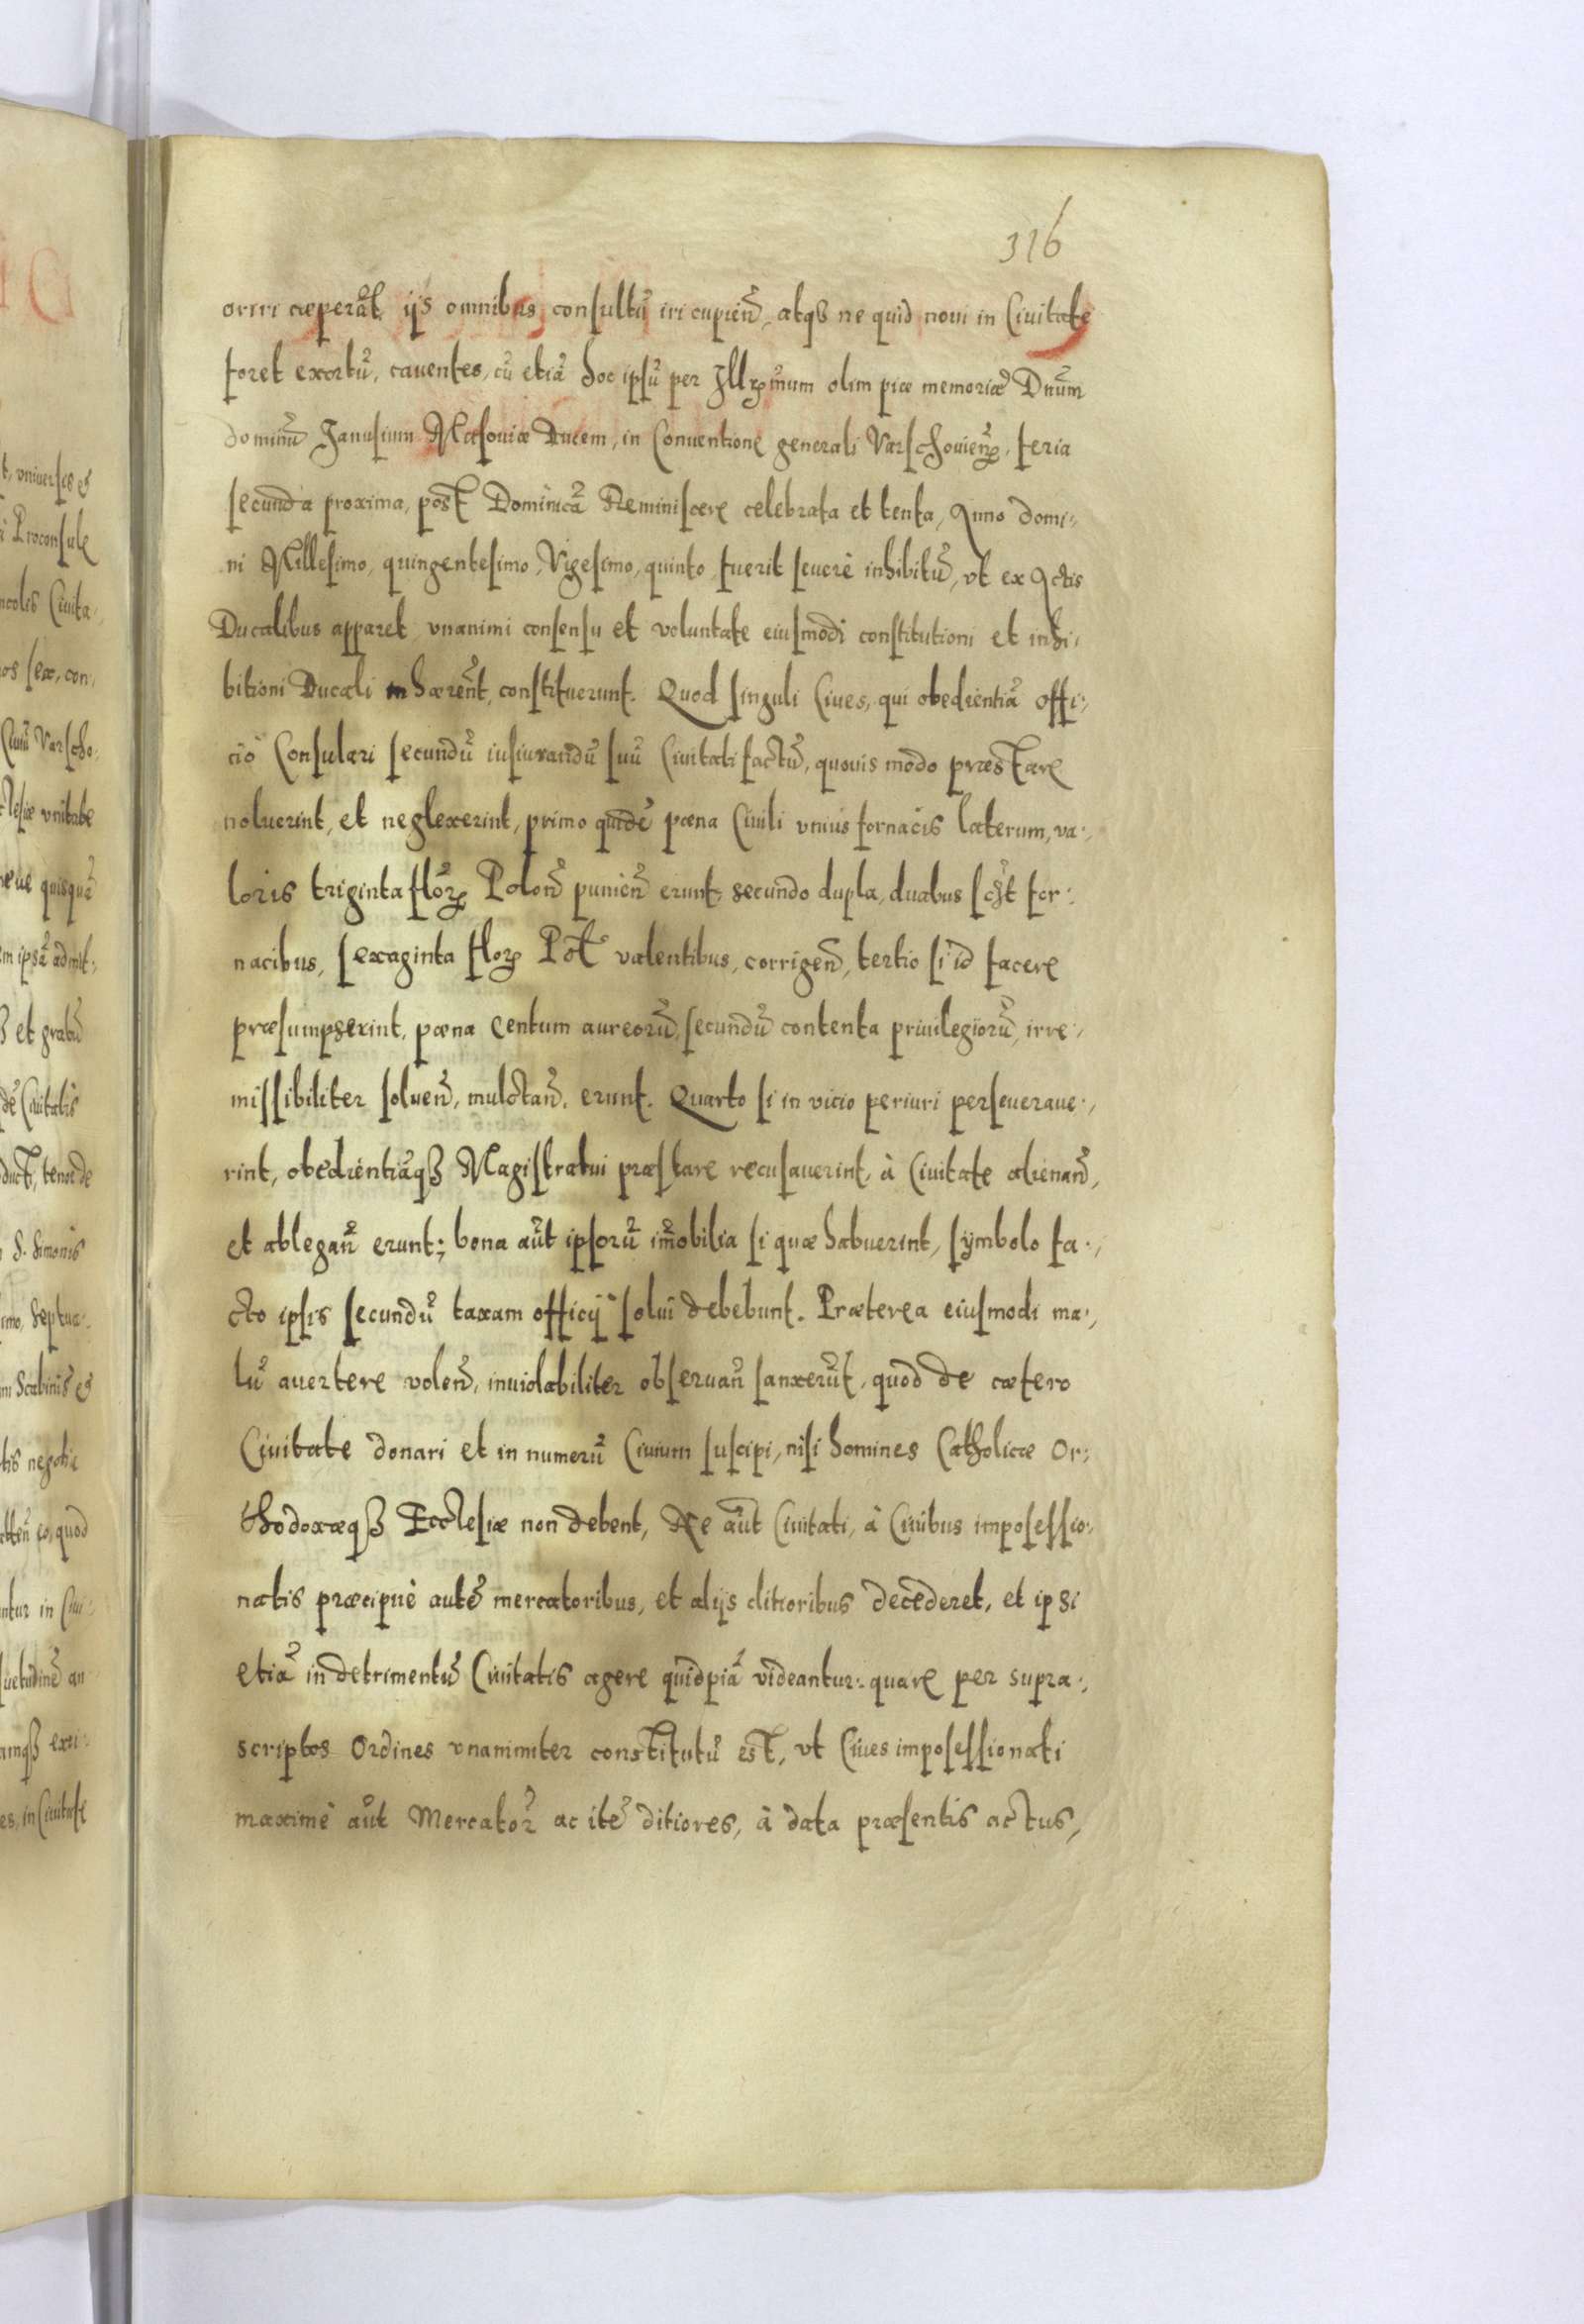 316
oriri cæperāt, ijs omnibus consultū iri cupień, atqȝ ne quid noui in Ciuitate
foret exortū, cauentes, cū etiā hoc ipsū per Illr̄mum olim piæ memoriæ Dnūm
dominū Janusium Masouiæ Ducem, in Conuentione generali Varschouień, feria
secunda proxima, post Dominicā Reminiscere celebrata et tenta, Anno domi-
ni Millesimo, quingentesimo, Vigesimo, quinto, fuerit seuerè inhibitū, vt ex Actis
Ducalibus apparet, vnanimi consensu et voluntate eiusmodi constitutioni et inhi-
bitioni Ducali inhæreñt, constituerunt. Quod singuli Ciues, qui obedientiā offi-
cio Consulari secundū iusiurandū suū Ciuitati factū, quouis modo præstare
noluerint, et neglexerint, primo quidē pæna Ciuili vnius fornacis laterum, va-
loris triginta flor Poloń punień erunt, secundo dupla, duabus sc̃t for-
nacibus, sexaginta flor Pol̃ valentibus, corrigeń, tertio si id facere
præsumpserint, pæna Centum aureorū, secundū contenta priuilegiorū, irre-
missibiliter solueń, mulctań, erunt. Quarto si in vicio periuri perseueraue-
rint, obedientiāqȝ Magistratui præstare recusauerint, à Ciuitate alienań,
et ablegań erunt; bona aūt ipsorū im̄obilia si quæ habuerint, symbolo fa-
cto ipsis secundū taxam officij solui debebunt. Præterea eiusmodi ma-
lū auertere voleń, inuiolabiliter obseruań sanxerūt, quod de cætero
Ciuitate donari et in numerū Ciuium suscipi, nisi homines Catholicæ Or-
thodoxæqȝ Ecclesiæ non debent, Ne aūt Ciuitati, à Ciuibus impossessio-
natis præcipuè autē mercatoribus, et alijs ditioribus decederet, et ipsi
etiā in detrimentū Ciuitatis agere quidpiā videantur: quare per supra-
scriptos Ordines vnanimiter constitutū est, vt Ciues impossessionati
maximè aūt Mercator ac itē ditiores, à data præsentis actus,